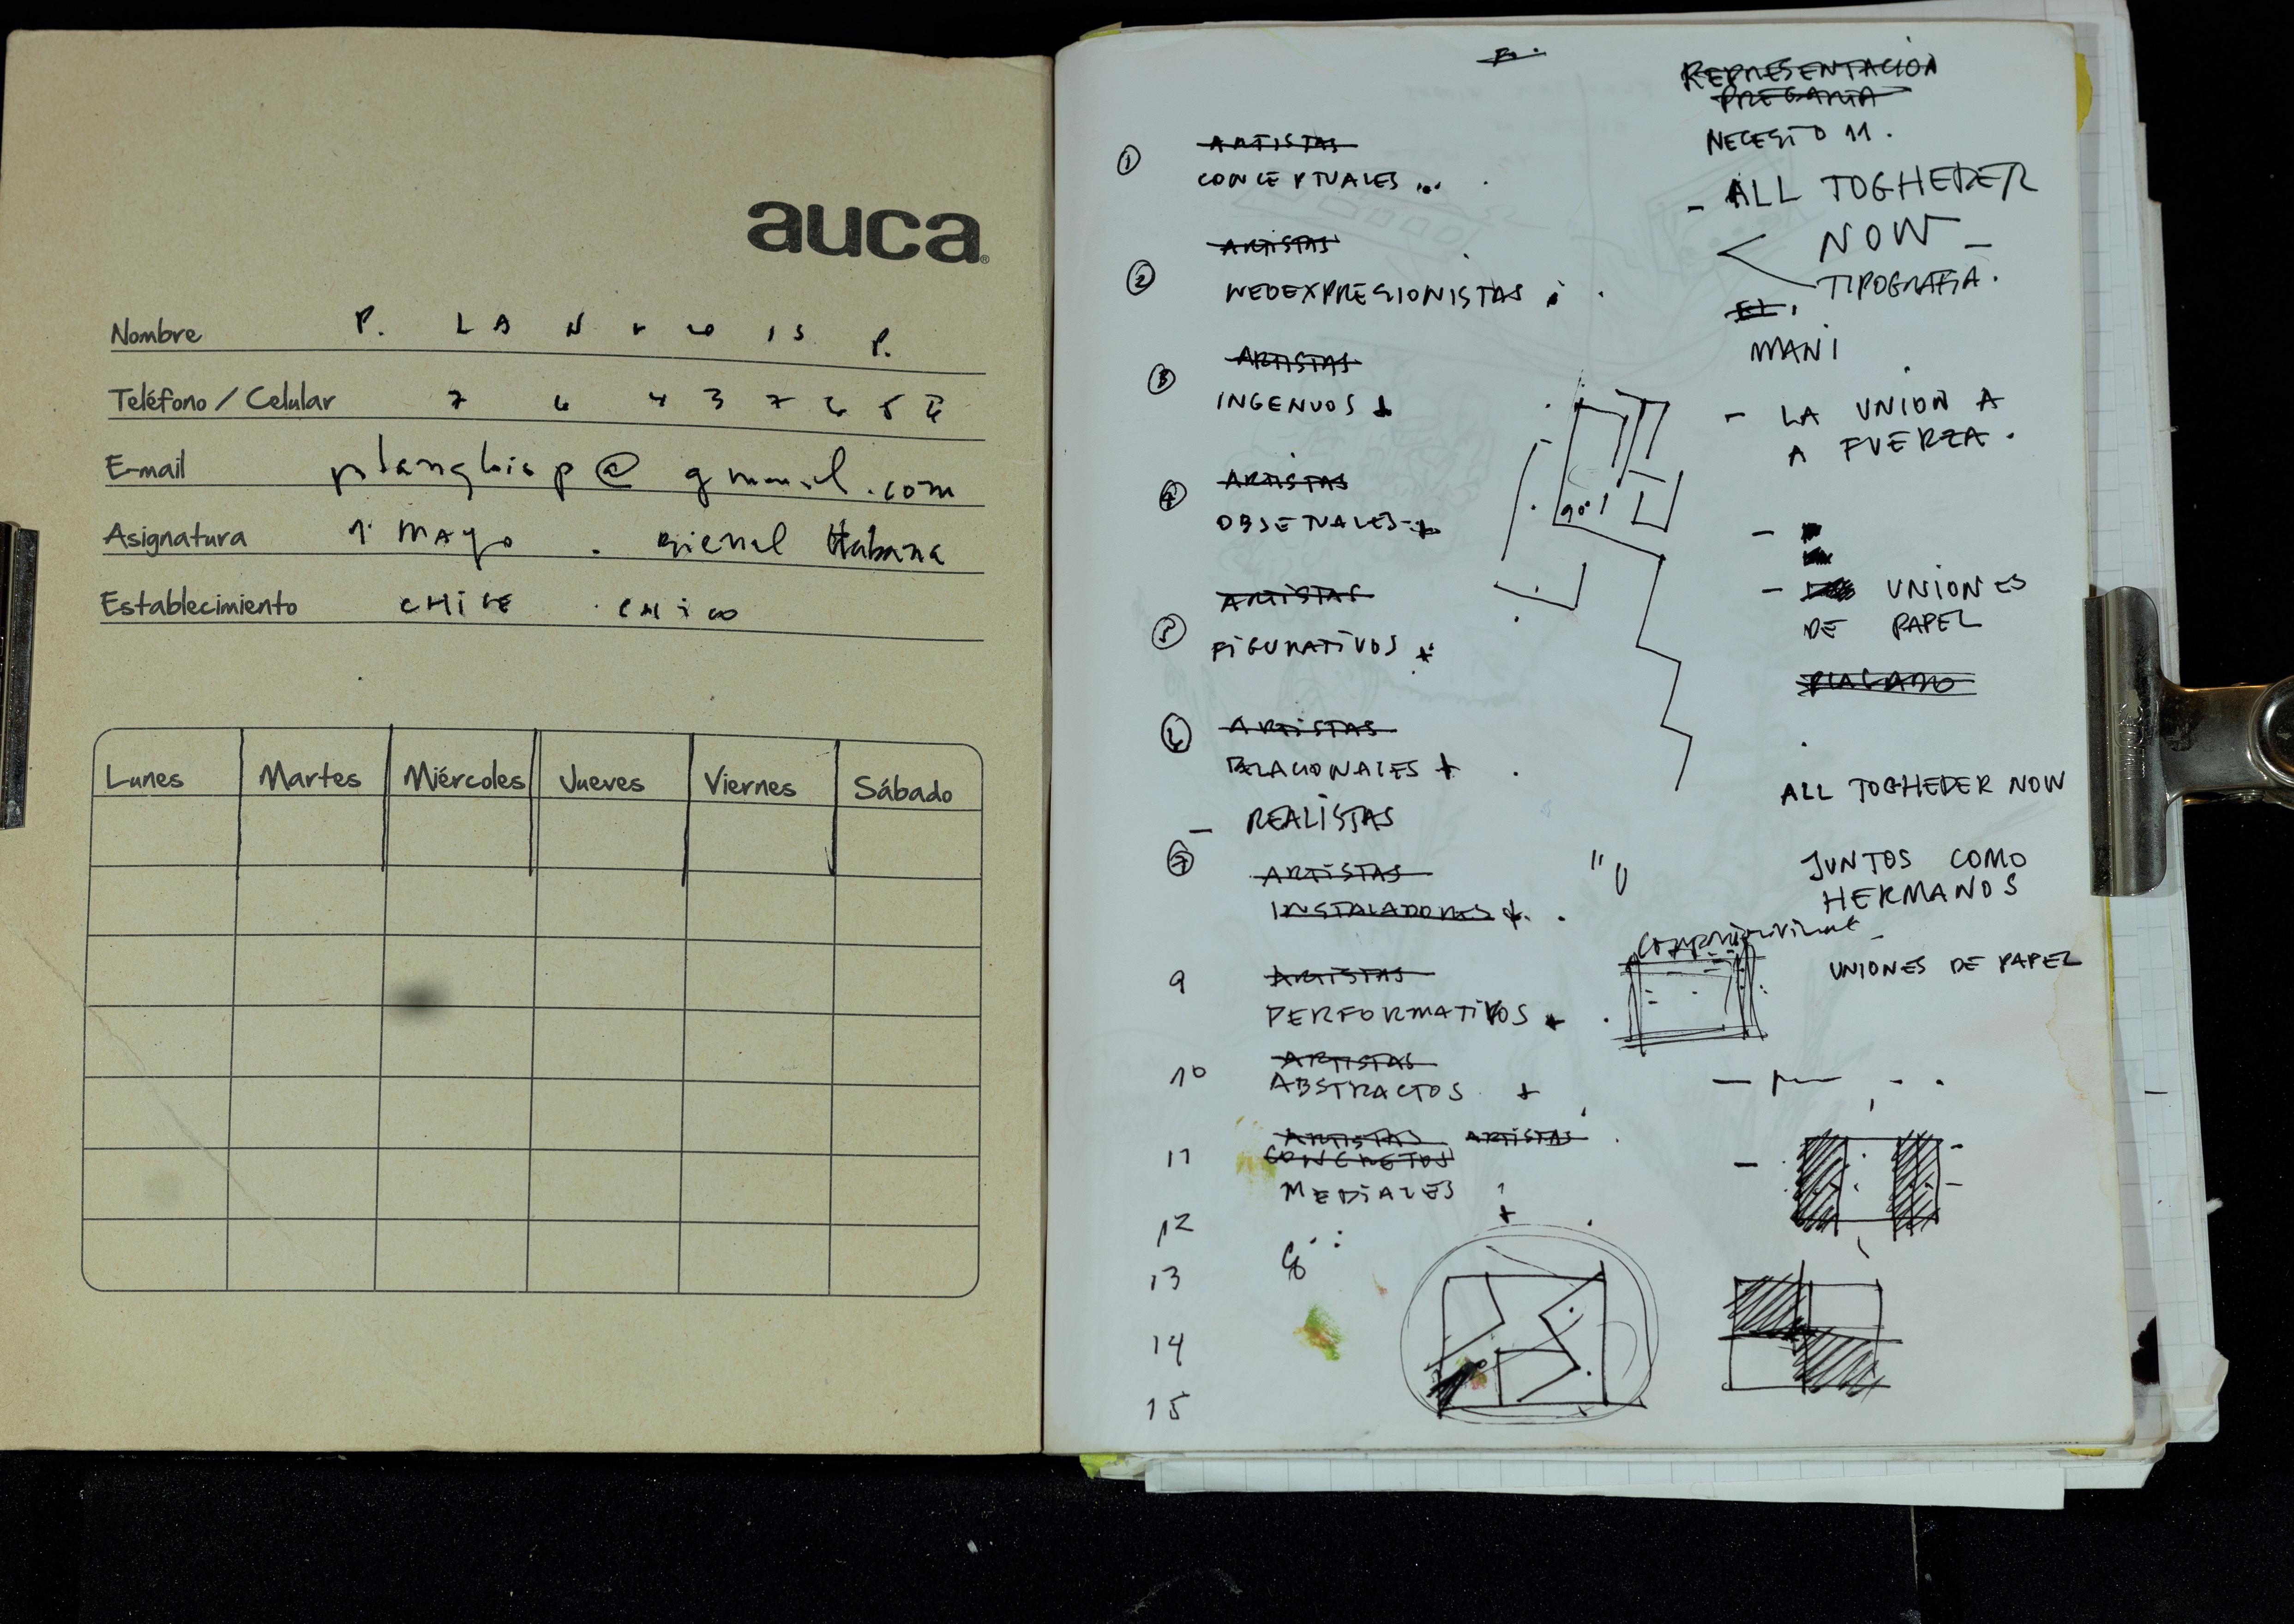 auca
Nombre P. LANGLOIS P.
Teléfono / Celular
E-mail plangloisp@gmail.com
Asignatura 1º MAYO . Bienal Habana
Establecimiento CHILE . CHICO
Lunes Martes Miércoles Jueves Viernes Sábado
1 ARTISTAS
CONCEPTUALES ...
2 ARTISTAS
NEOEXPRESIONISTAS
3 ARTISTAS
INGENUOS +
4 ARTISTAS
OBJETUALES +
5 ARTISTAS
FIGURATIVOS +
6 ARTISTAS
RELACIONALES +
- REALISTAS
7 ARTISTAS
INSTALADORES +.
9 ARTISTAS
PERFORMATIVOS +
10 ARTISTAS
ABSTRACTOS +
11 ARTISTAS ARTISTAS
CONCRETOS
MEDIALES +
12
13
14
15
REPRESENTACION
PREGARIA
NECESITO 11.
- ALL TOGHEDER
NOW -
TIPOGRAFIA.
EL
MANI
- LA UNION A
A FUERZA.
90º
- UNIONES
DE PAPEL
ALL TOGHEDER NOW
JUNTOS COMO
HERMANOS
UNIONES DE PAPEL